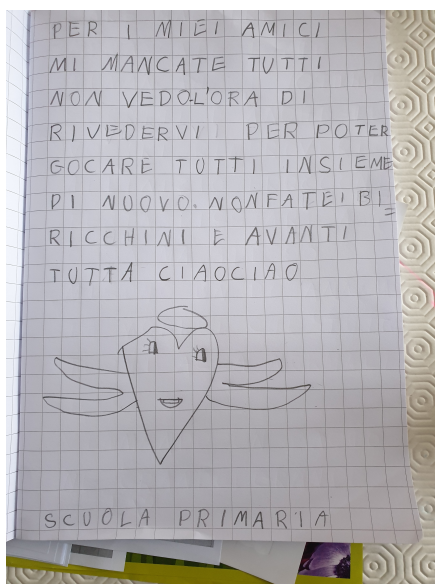 PER I MIEI AMICI
MI MANCATE TUTTI
NON VEDO L'ORA DI
RIVEDERVI PER POTER
GOCARE TUTTI INSIEME
DI NUOVO. NON FATE I BI=
RICCHINI E AVANTI
TUTTA CIAO CIAO
SCUOLA PRIMARIA